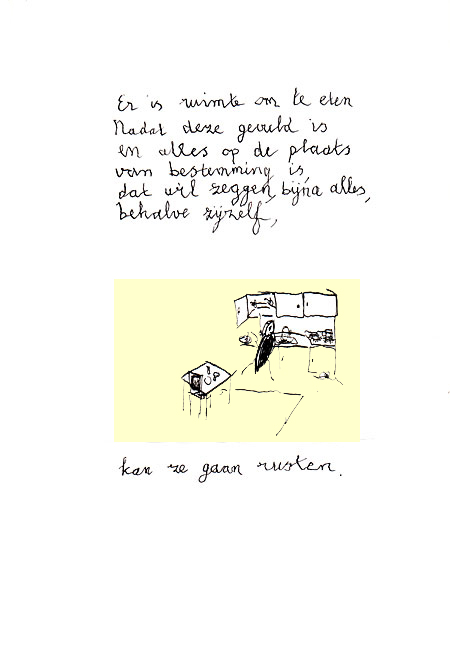 Er is ruimte om te eten
Nadat deze gevuld is
en alles op de plaats
van bestemming is,
dat wil zeggen, bijna alles,
behalve zijzelf,
kan ze gaan rusten.